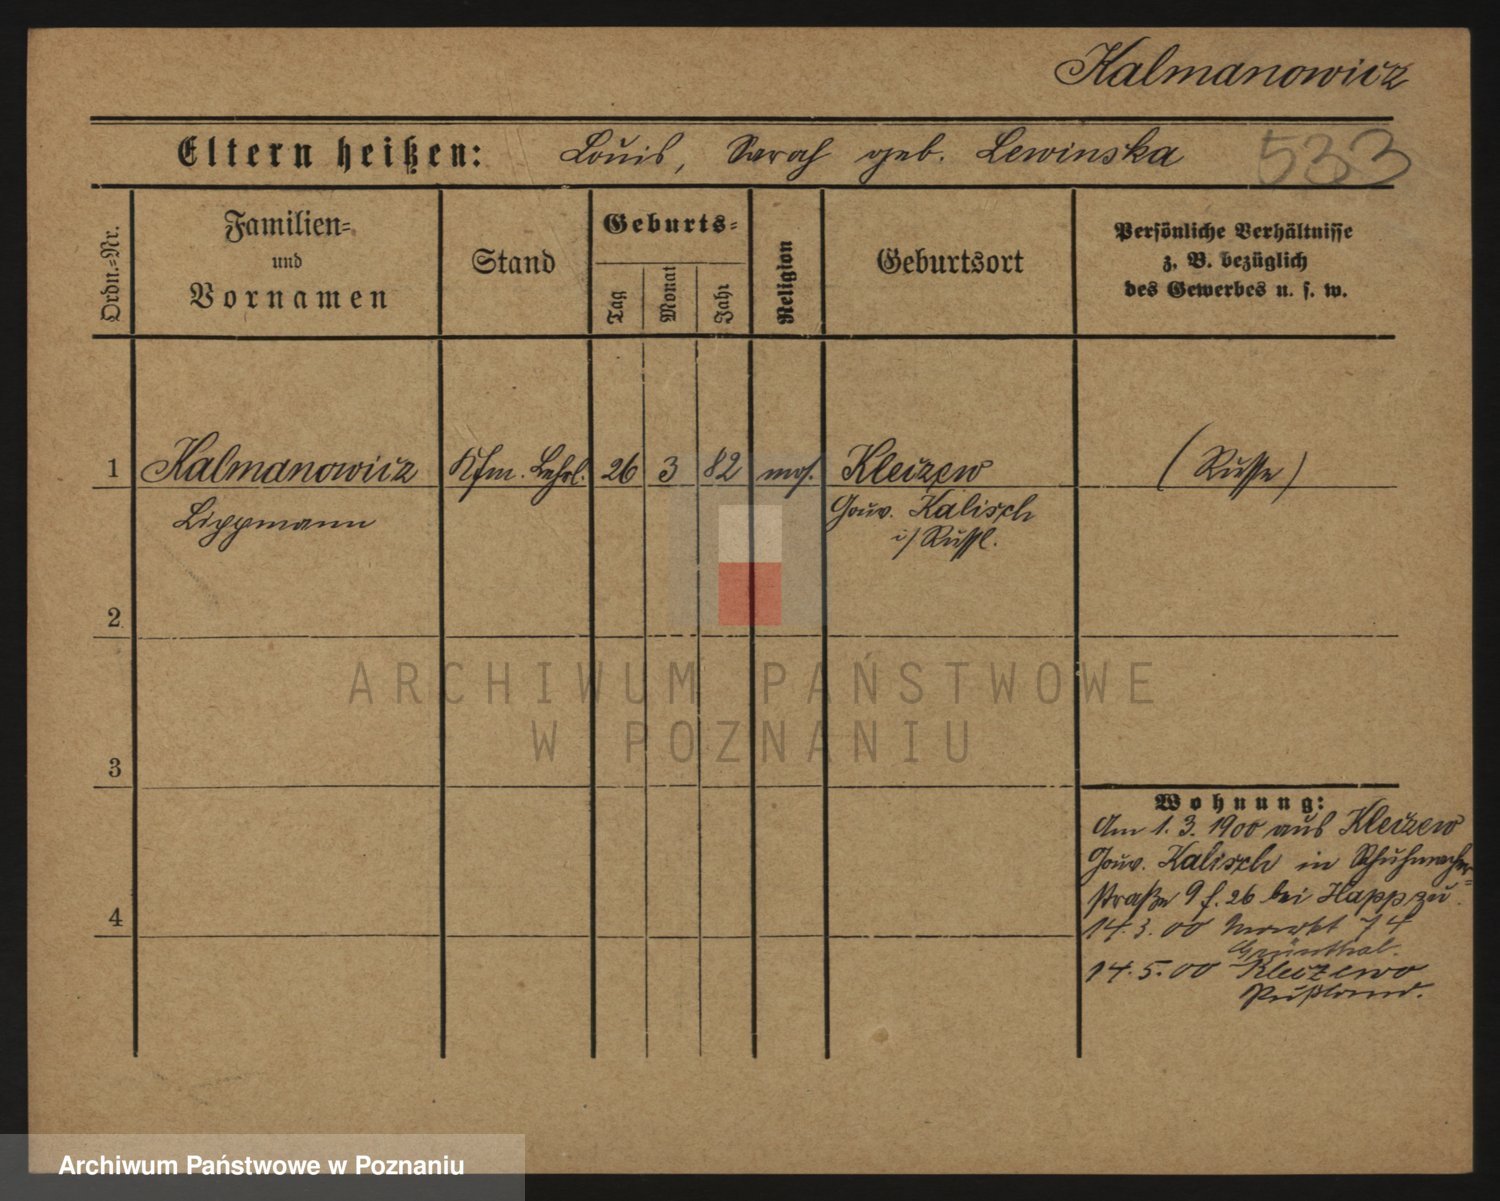 Kalmanowicz
Eltern heißen: Louis, Sarah geb. Lewinska 533
Ordn.-Nr.
Familien-
und
Vornamen
Stand
Geburts-
Tag
Monat
Jahr
Religion
Geburtsort
Persönliche Verhältnisse
z. B. bezüglich
des Gewerbes u. s. w.
1 Kalmanowicz Kfm. Lehrl. 26 3 82 mos. Kleczew (Russe)
Lippmann Gouv. Kalisch
i/Russl.
2
3
4
Wohnung:
Am 1. 3. 1900 aus Kleczew
Gouv. Kalisch in Schuhmacher-
straße 9 f. 26 bei Happ zu.
14. 3. 00 Markt 74
Grünthal.
14. 5. 00 Kleczewo
Rußland.
ARCHIWUM PAŃSTWOWE
W POZNANIU
Archiwum Państwowe w Poznaniu